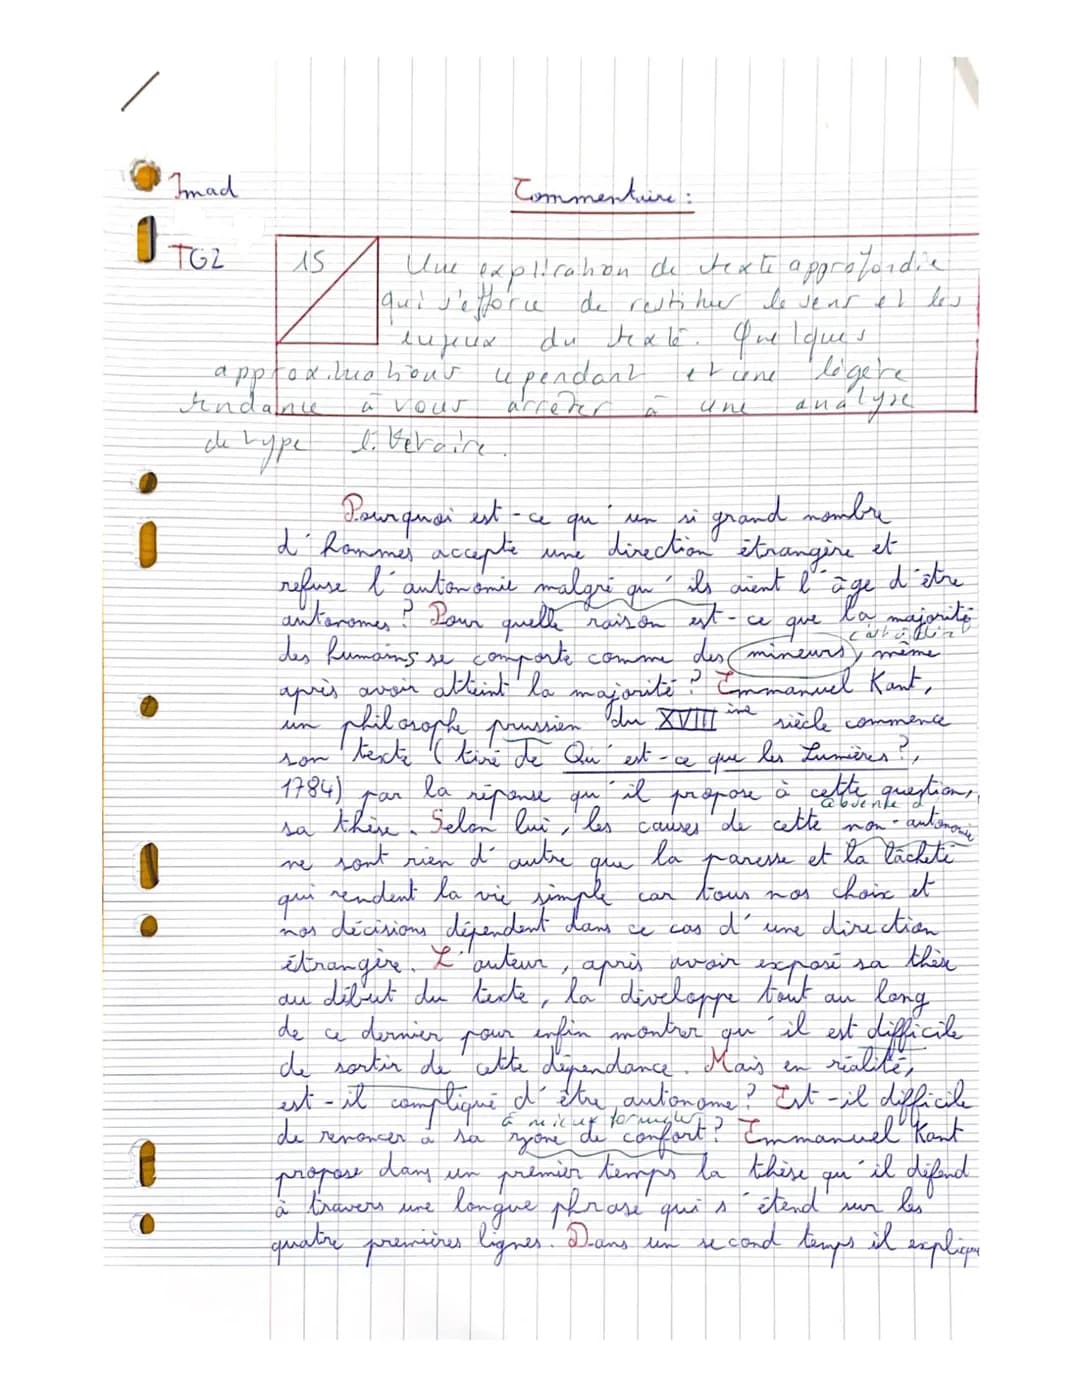 Imad
Commentaire :
TG2
15
Une explication de texte approfondie
qui s'efforce de restituer le sens et les
enjeux du texte. Quelques
approximations cependant et une légère
tendance à vous arrêter à une analyse
de type littéraire.
Pourquoi est-ce qu'un si grand nombre
d'hommes accepte une direction étrangère et
refuse l'autonomie malgré qu'ils aient l'âge d'être
autonomes ? Pour quelle raison est-ce que la majorité
c'est à dire
des humains se comporte comme des mineurs, même
après avoir atteint la majorité ? Emmanuel Kant,
un philosophe prussien du XVIII ème siècle commence
son texte (tiré de Qu'est-ce que les Lumières ?,
1784) par la réponse qu'il propose à cette question,
absence d'
sa thèse. Selon lui, les causes de cette non-autonomie
ne sont rien d'autre que la paresse et la lâcheté
qui rendent la vie simple car tous nos choix et
nos décisions dépendent dans ce cas d'une direction
étrangère. L'auteur, après avoir exposé sa thèse
au début du texte, la développe tout au long
de ce dernier pour enfin montrer qu'il est difficile
de sortir de cette dépendance. Mais en réalité,
est-il compliqué d'être autonome ? Est-il difficile
à mieux formuler
de renoncer à sa zone de confort ? Emmanuel Kant
propose dans un premier temps la thèse qu'il défend
à travers une longue phrase qui s'étend sur les
quatre premières lignes. Dans un second temps il explique